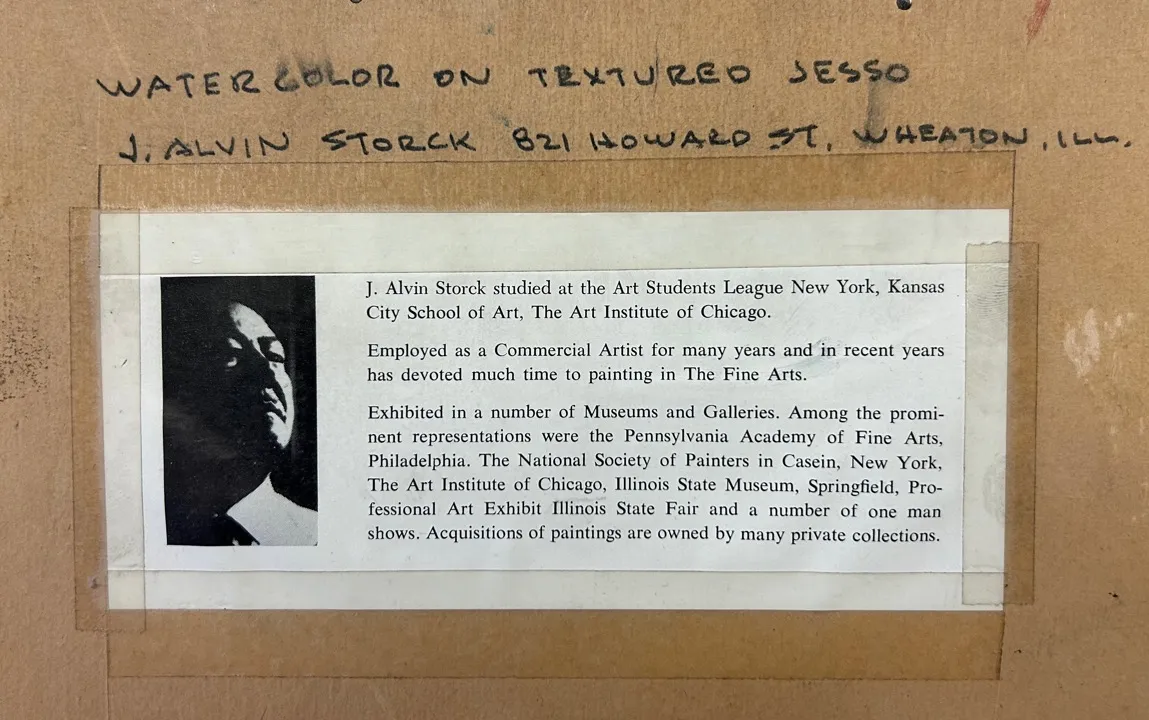 WATERCOLOR ON TEXTURED JESSO
J. ALVIN STORCK 821 HOWARD ST, WHEATON, ILL.
J. Alvin Storck studied at the Art Students League New York, Kansas
City School of Art, The Art Institute of Chicago.
Employed as a Commercial Artist for many years and in recent years
has devoted much time to painting in The Fine Arts.
Exhibited in a number of Museums and Galleries. Among the promi-
nent representations were the Pennsylvania Academy of Fine Arts,
Philadelphia. The National Society of Painters in Casein, New York,
The Art Institute of Chicago, Illinois State Museum, Springfield, Pro-
fessional Art Exhibit Illinois State Fair and a number of one man
shows. Acquisitions of paintings are owned by many private collections.